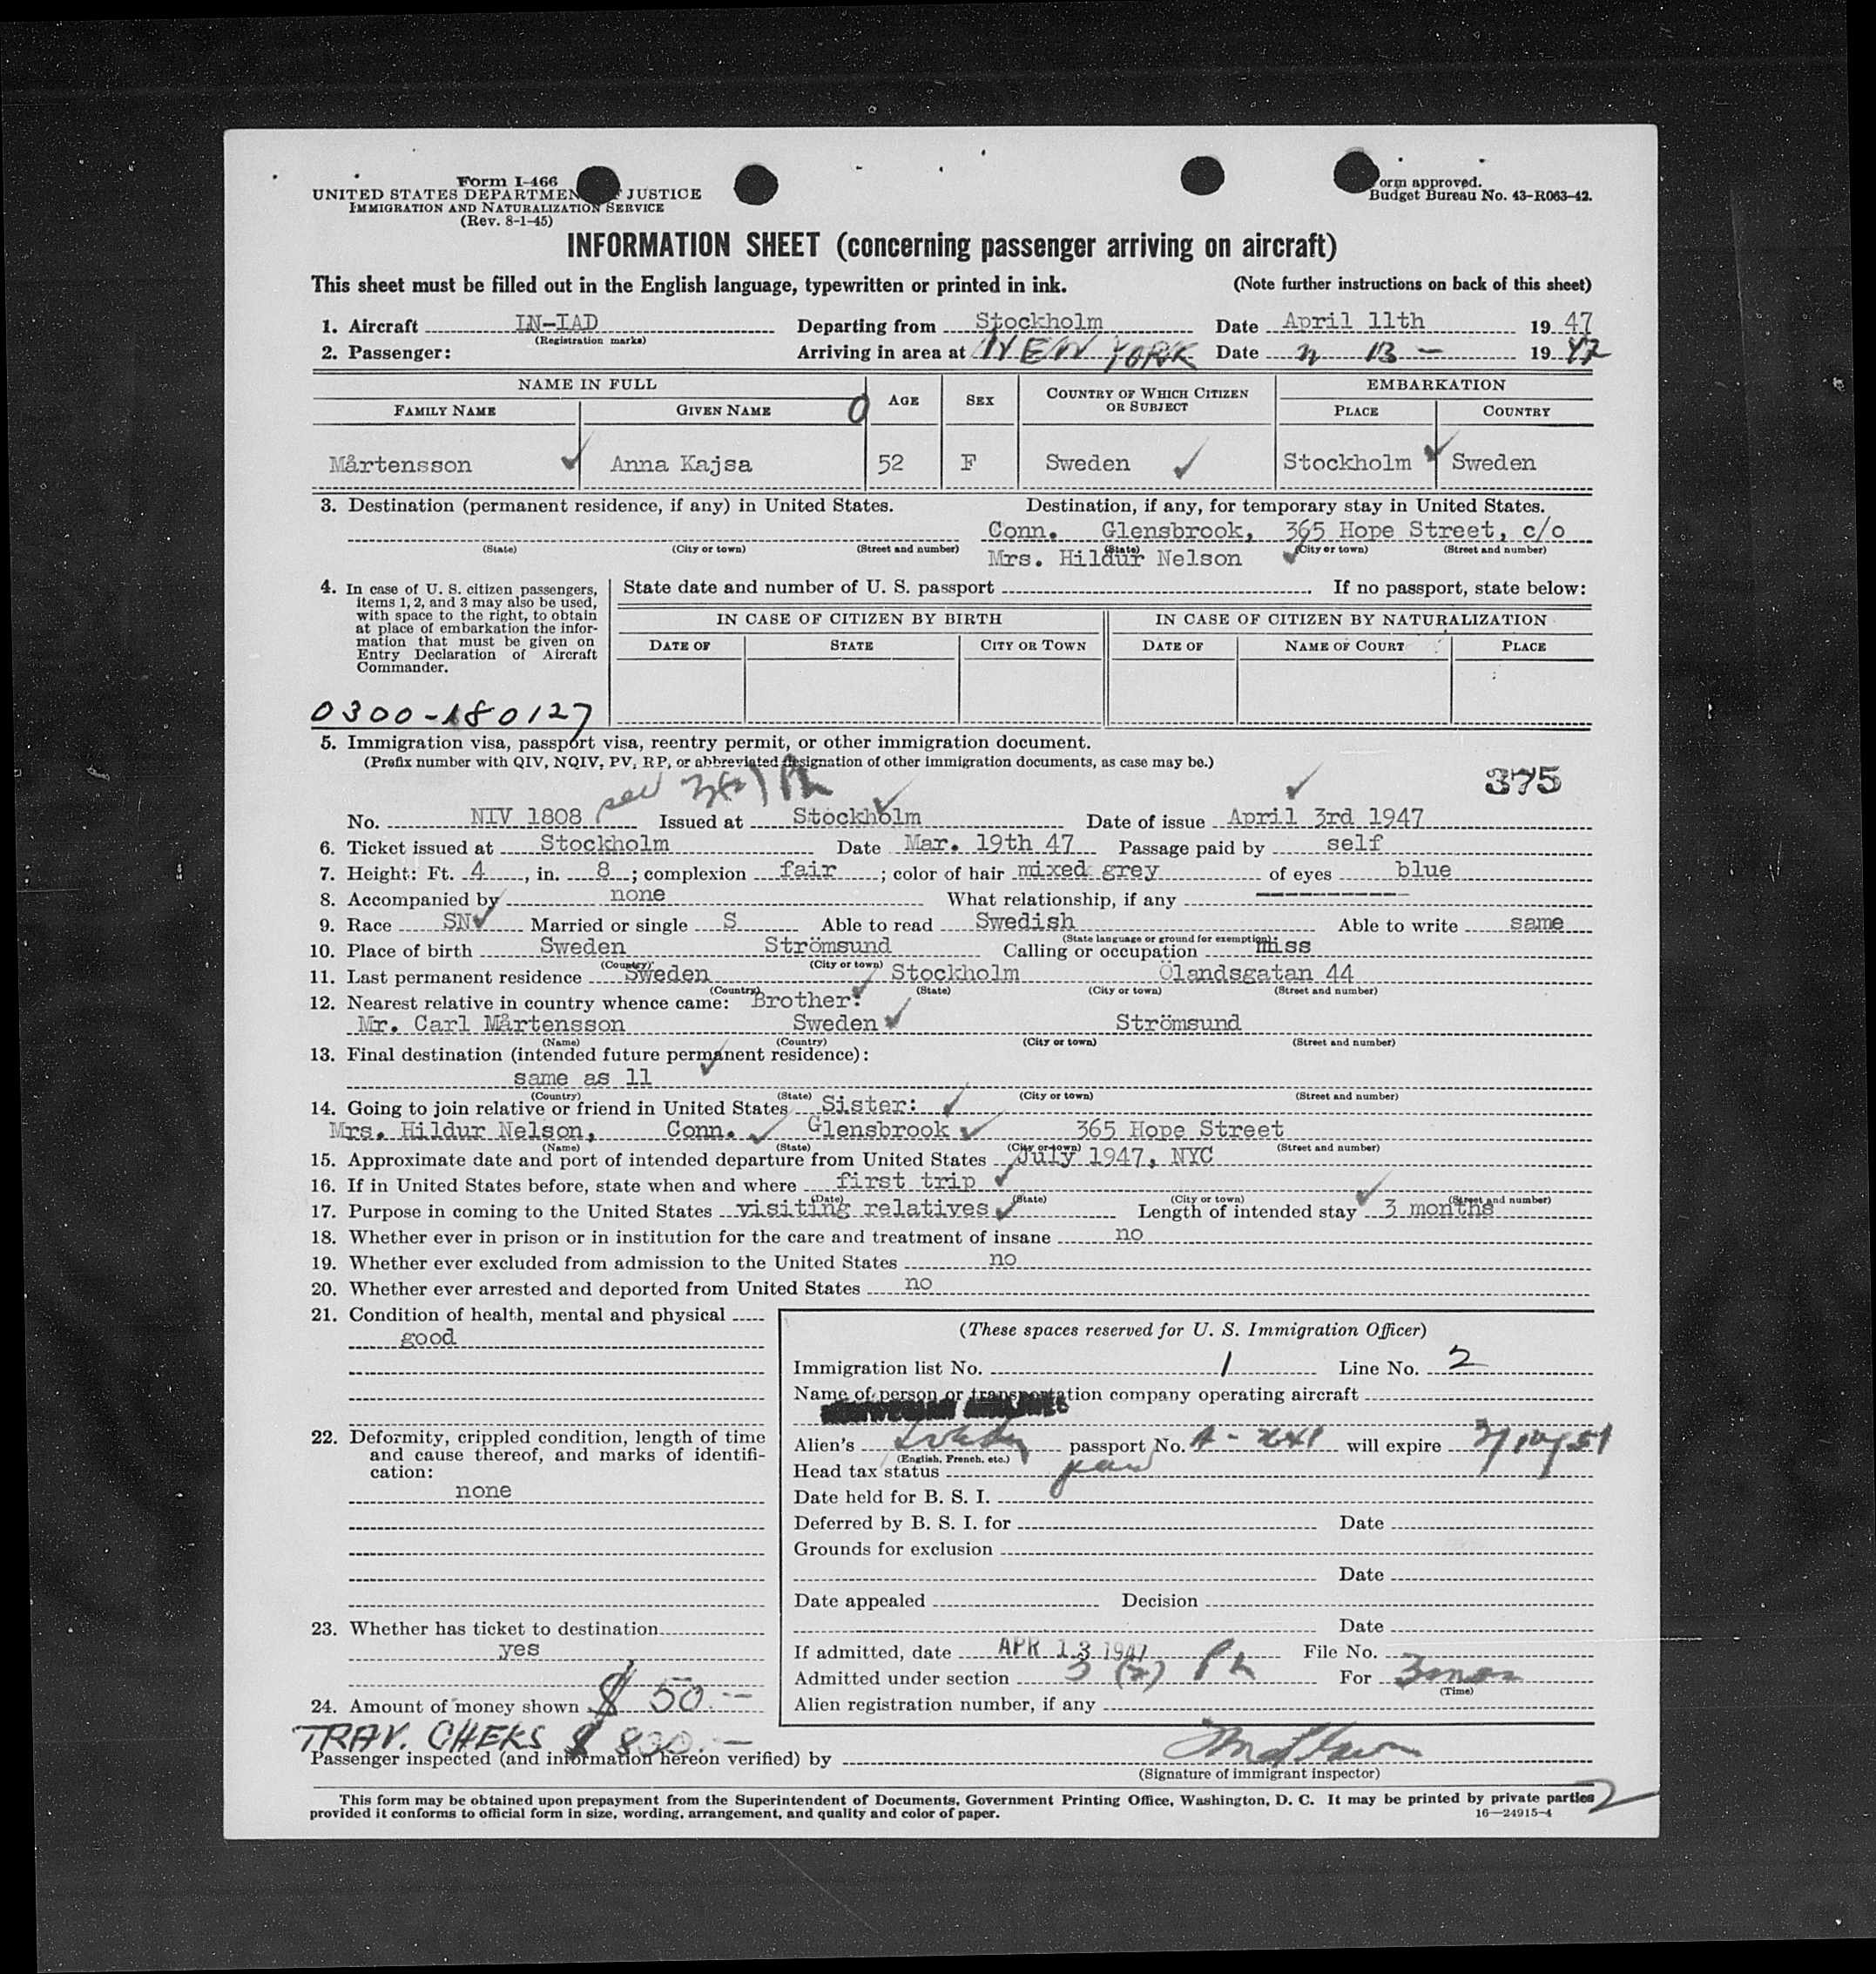 Form I-466
UNITED STATES DEPARTMENT OF JUSTICE
IMMIGRATION AND NATURALIZATION SERVICE
(Rev. 8-1-45)
Form approved.
Budget Bureau No. 43-R063-42.
INFORMATION SHEET (concerning passenger arriving on aircraft)
This sheet must be filled out in the English language, typewritten or printed in ink. (Note further instructions on back of this sheet)
1. Aircraft LN-IAD Departing from Stockholm Date April 11th 19 47
(Registration marks)
2. Passenger: Arriving in area at NEW YORK Date 13 - 19 47
NAME IN FULL AGE SEX COUNTRY OF WHICH CITIZEN OR SUBJECT EMBARKATION
FAMILY NAME GIVEN NAME PLACE COUNTRY
Mårtensson Anna Kajsa 52 F Sweden Stockholm Sweden
3. Destination (permanent residence, if any) in United States. Destination, if any, for temporary stay in United States.
Conn. Glensbrook, 365 Hope Street, c/o
(State) (City or town) (Street and number) (State) (City or town) (Street and number)
Mrs. Hildur Nelson
4. In case of U. S. citizen passengers, items 1, 2, and 3 may also be used, with space to the right, to obtain at place of embarkation the information that must be given on Entry Declaration of Aircraft Commander.
State date and number of U. S. passport If no passport, state below:
IN CASE OF CITIZEN BY BIRTH IN CASE OF CITIZEN BY NATURALIZATION
DATE OF STATE CITY OR TOWN DATE OF NAME OF COURT PLACE
0300-180127
5. Immigration visa, passport visa, reentry permit, or other immigration document.
(Prefix number with QIV, NQIV, PV, RP, or abbreviated designation of other immigration documents, as case may be.)
375
No. NIV 1808 Issued at Stockholm Date of issue April 3rd 1947
6. Ticket issued at Stockholm Date Mar. 19th 47 Passage paid by self
7. Height: Ft. 4, in. 8; complexion fair; color of hair mixed grey of eyes blue
8. Accompanied by none What relationship, if any
9. Race SN Married or single S Able to read Swedish Able to write same
(State language or ground for exemption)
10. Place of birth Sweden Strömsund Calling or occupation miss
(Country) (City or town)
11. Last permanent residence Sweden Stockholm Ölandsgatan 44
(Country) (State) (City or town) (Street and number)
12. Nearest relative in country whence came: Brother:
Mr. Carl Mårtensson Sweden Strömsund
(Name) (Country) (City or town) (Street and number)
13. Final destination (intended future permanent residence):
same as 11
(Country) (State) (City or town) (Street and number)
14. Going to join relative or friend in United States Sister:
Mrs. Hildur Nelson, Conn. Glensbrook 365 Hope Street
(Name) (State) (City or town) (Street and number)
15. Approximate date and port of intended departure from United States July 1947, NYC
16. If in United States before, state when and where first trip
(Date) (State) (City or town) (Street and number)
17. Purpose in coming to the United States visiting relatives Length of intended stay 3 months
18. Whether ever in prison or in institution for the care and treatment of insane no
19. Whether ever excluded from admission to the United States no
20. Whether ever arrested and deported from United States no
21. Condition of health, mental and physical
good
22. Deformity, crippled condition, length of time and cause thereof, and marks of identification:
none
23. Whether has ticket to destination
yes
24. Amount of money shown $ 50.-
TRAV. CHEKS $ 800.-
(These spaces reserved for U. S. Immigration Officer)
Immigration list No. 1 Line No. 2
Name of person or transportation company operating aircraft
Alien's passport No. will expire
(English, French, etc.)
Head tax status paid
Date held for B. S. I.
Deferred by B. S. I. for Date
Grounds for exclusion
Date
Date appealed Decision
Date
If admitted, date APR 13 1947 File No.
Admitted under section 3 (2) For 3 mos
(Time)
Alien registration number, if any
Passenger inspected (and information hereon verified) by
(Signature of immigrant inspector)
This form may be obtained upon prepayment from the Superintendent of Documents, Government Printing Office, Washington, D. C. It may be printed by private parties
provided it conforms to official form in size, wording, arrangement, and quality and color of paper. 16—24915-4
2